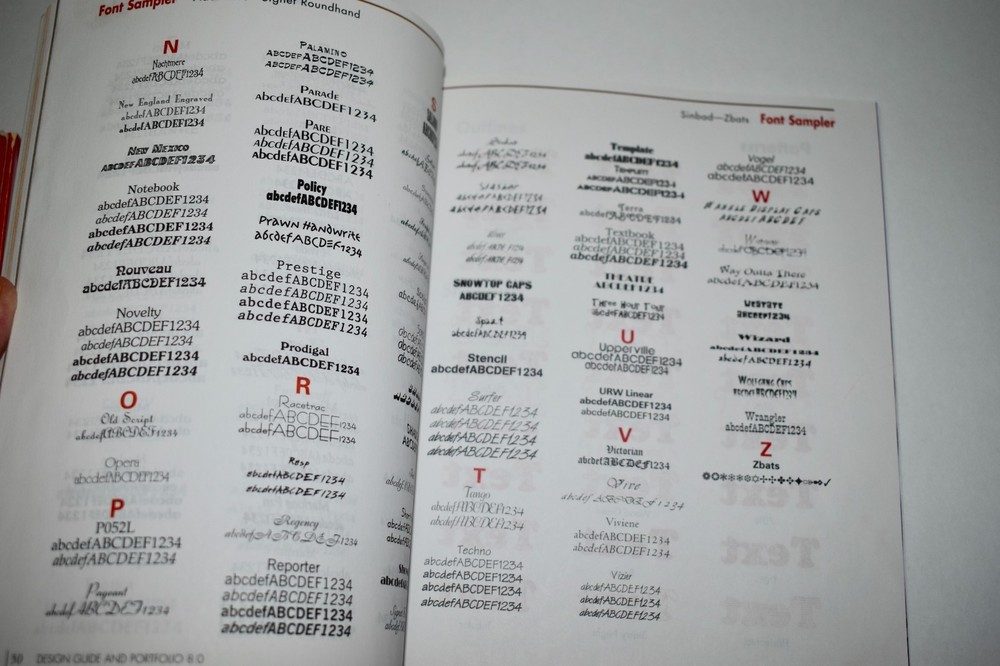 Font Sampler
Signer Roundhand
N
Nachtmere
abcdefABCDEF1234
New England Engraved
abcdefABCDEF1234
abcdefABCDEF1234
New Mexico
abcdefABCDEF1234
Notebook
abcdefABCDEF1234
abcdefABCDEF1234
abcdefABCDEF1234
abcdefABCDEF1234
Nouveau
abcdefABCDEF1234
Novelty
abcdefABCDEF1234
abcdefABCDEF1234
abcdefABCDEF1234
abcdefABCDEF1234
O
Old Script
abcdefABCDEF1234
Opera
abcdefABCDEF1234
P
P052L
abcdefABCDEF1234
abcdefABCDEF1234
Pageant
abcdefABCDEF1234
50 DESIGN GUIDE AND PORTFOLIO 8.0
Palamino
abcdefABCDEF1234
abcdefABCDEF1234
Parade
abcdefABCDEF1234
Pare
abcdefABCDEF1234
abcdefABCDEF1234
abcdefABCDEF1234
Policy
abcdefABCDEF1234
Prawn Handwrite
abcdefABCDEF1234
Prestige
abcdefABCDEF1234
abcdefABCDEF1234
abcdefABCDEF1234
abcdefABCDEF1234
Prodigal
abcdefABCDEF1234
R
Racetrac
abcdefABCDEF1234
abcdefABCDEF1234
Rasp
abcdefABCDEF1234
abcdefABCDEF1234
Regency
abcdefABCDEF1234
Reporter
abcdefABCDEF1234
abcdefABCDEF1234
abcdefABCDEF1234
abcdefABCDEF1234
Sinbad—Zbats Font Sampler
SNOWTOP CAPS
ABCDEF1234
abcdefABCDEF1234
Stencil
abcdefABCDEF1234
Surfer
abcdefABCDEF1234
abcdefABCDEF1234
abcdefABCDEF1234
abcdefABCDEF1234
T
Tango
abcdefABCDEF1234
abcdefABCDEF1234
Techno
abcdefABCDEF1234
abcdefABCDEF1234
abcdefABCDEF1234
abcdefABCDEF1234
Template
abcdefABCDEF1234
Templett
abcdefABCDEF1234
Terra
abcdefABCDEF1234
Textbook
abcdefABCDEF1234
abcdefABCDEF1234
abcdefABCDEF1234
THEATRE
ABCDEF1234
Three Hour Tour
abcdefABCDEF1234
U
Upperville
abcdefABCDEF1234
abcdefABCDEF1234
URW Linear
abcdefABCDEF1234
abcdefABCDEF1234
V
Victorian
abcdefABCDEF1234
Vire
abcdefABCDEF1234
Viviene
abcdefABCDEF1234
abcdefABCDEF1234
Vizier
abcdefABCDEF1234
abcdefABCDEF1234
abcdefABCDEF1234
Vogel
abcdefABCDEF1234
abcdefABCDEF1234
W
Way Outta There
abcdefABCDEF1234
Wizard
abcdefABCDEF1234
abcdefABCDEF1234
Wolfgang Caps
abcdefABCDEF1234
Wrangler
abcdefABCDEF1234
Z
Zbats